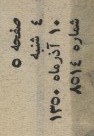 صفحه ۵
۴ شنبه
۱۰ آذرماه ۱۳۵۰
شماره ۸۵۱۴